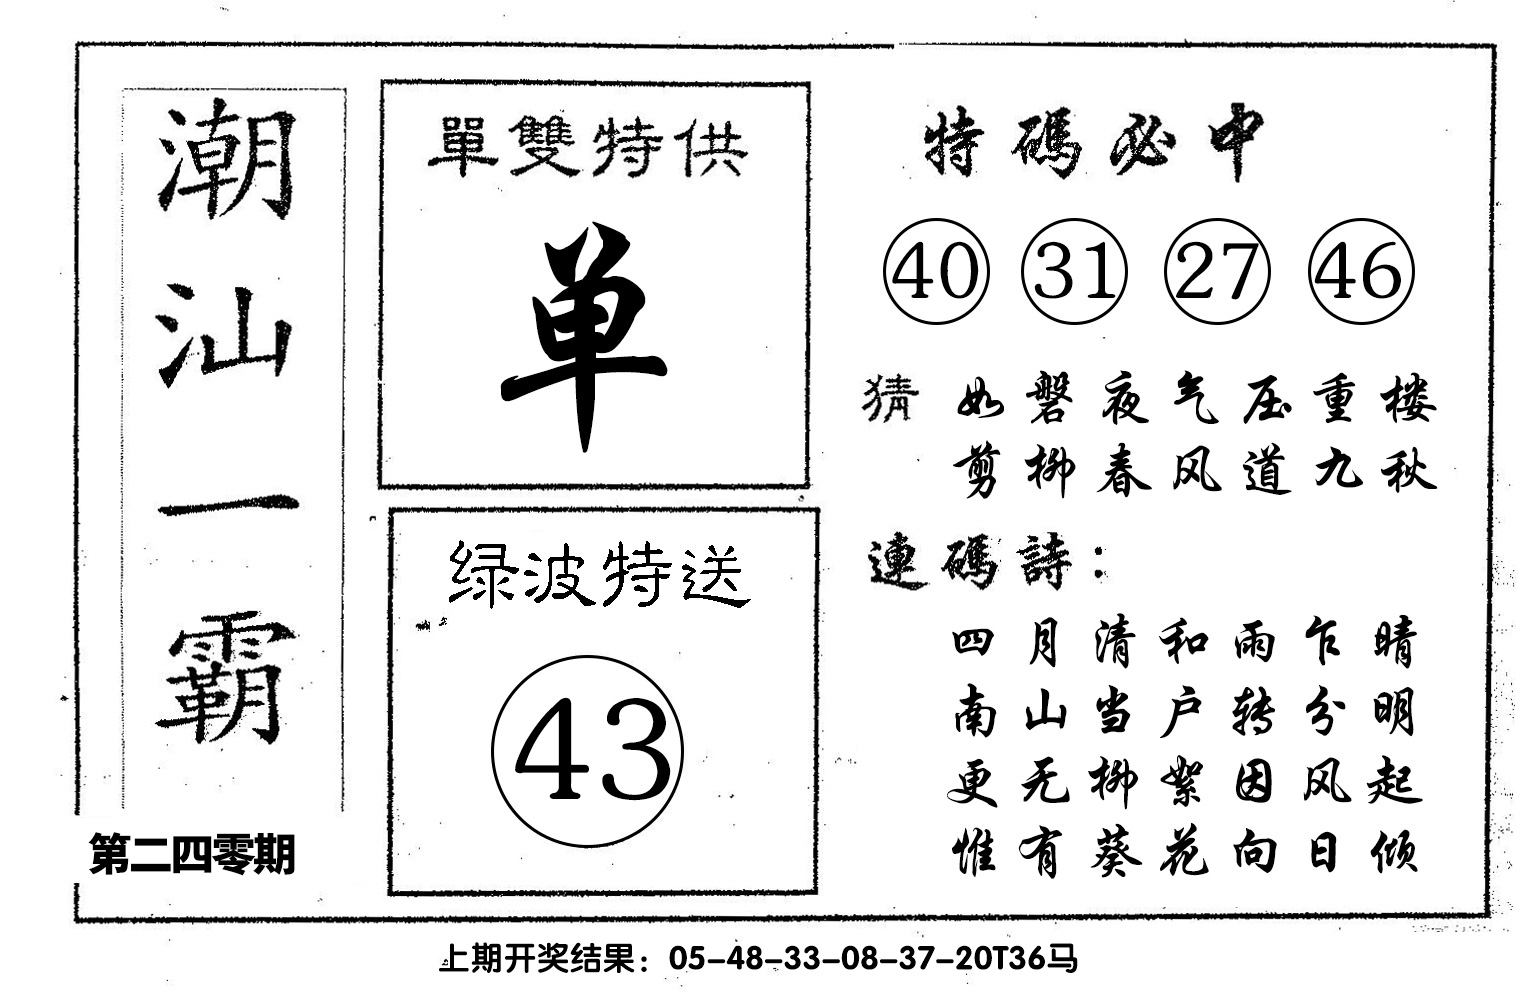 潮汕一霸
第二四零期
單雙特供
单
绿波特送
43
特碼必中
40 31 27 46
猜 如磐夜气压重楼
剪柳春风道九秋
連碼詩：
四月清和雨乍晴
南山当户转分明
更无柳絮因风起
惟有葵花向日倾
上期开奖结果：05-48-33-08-37-20T36马